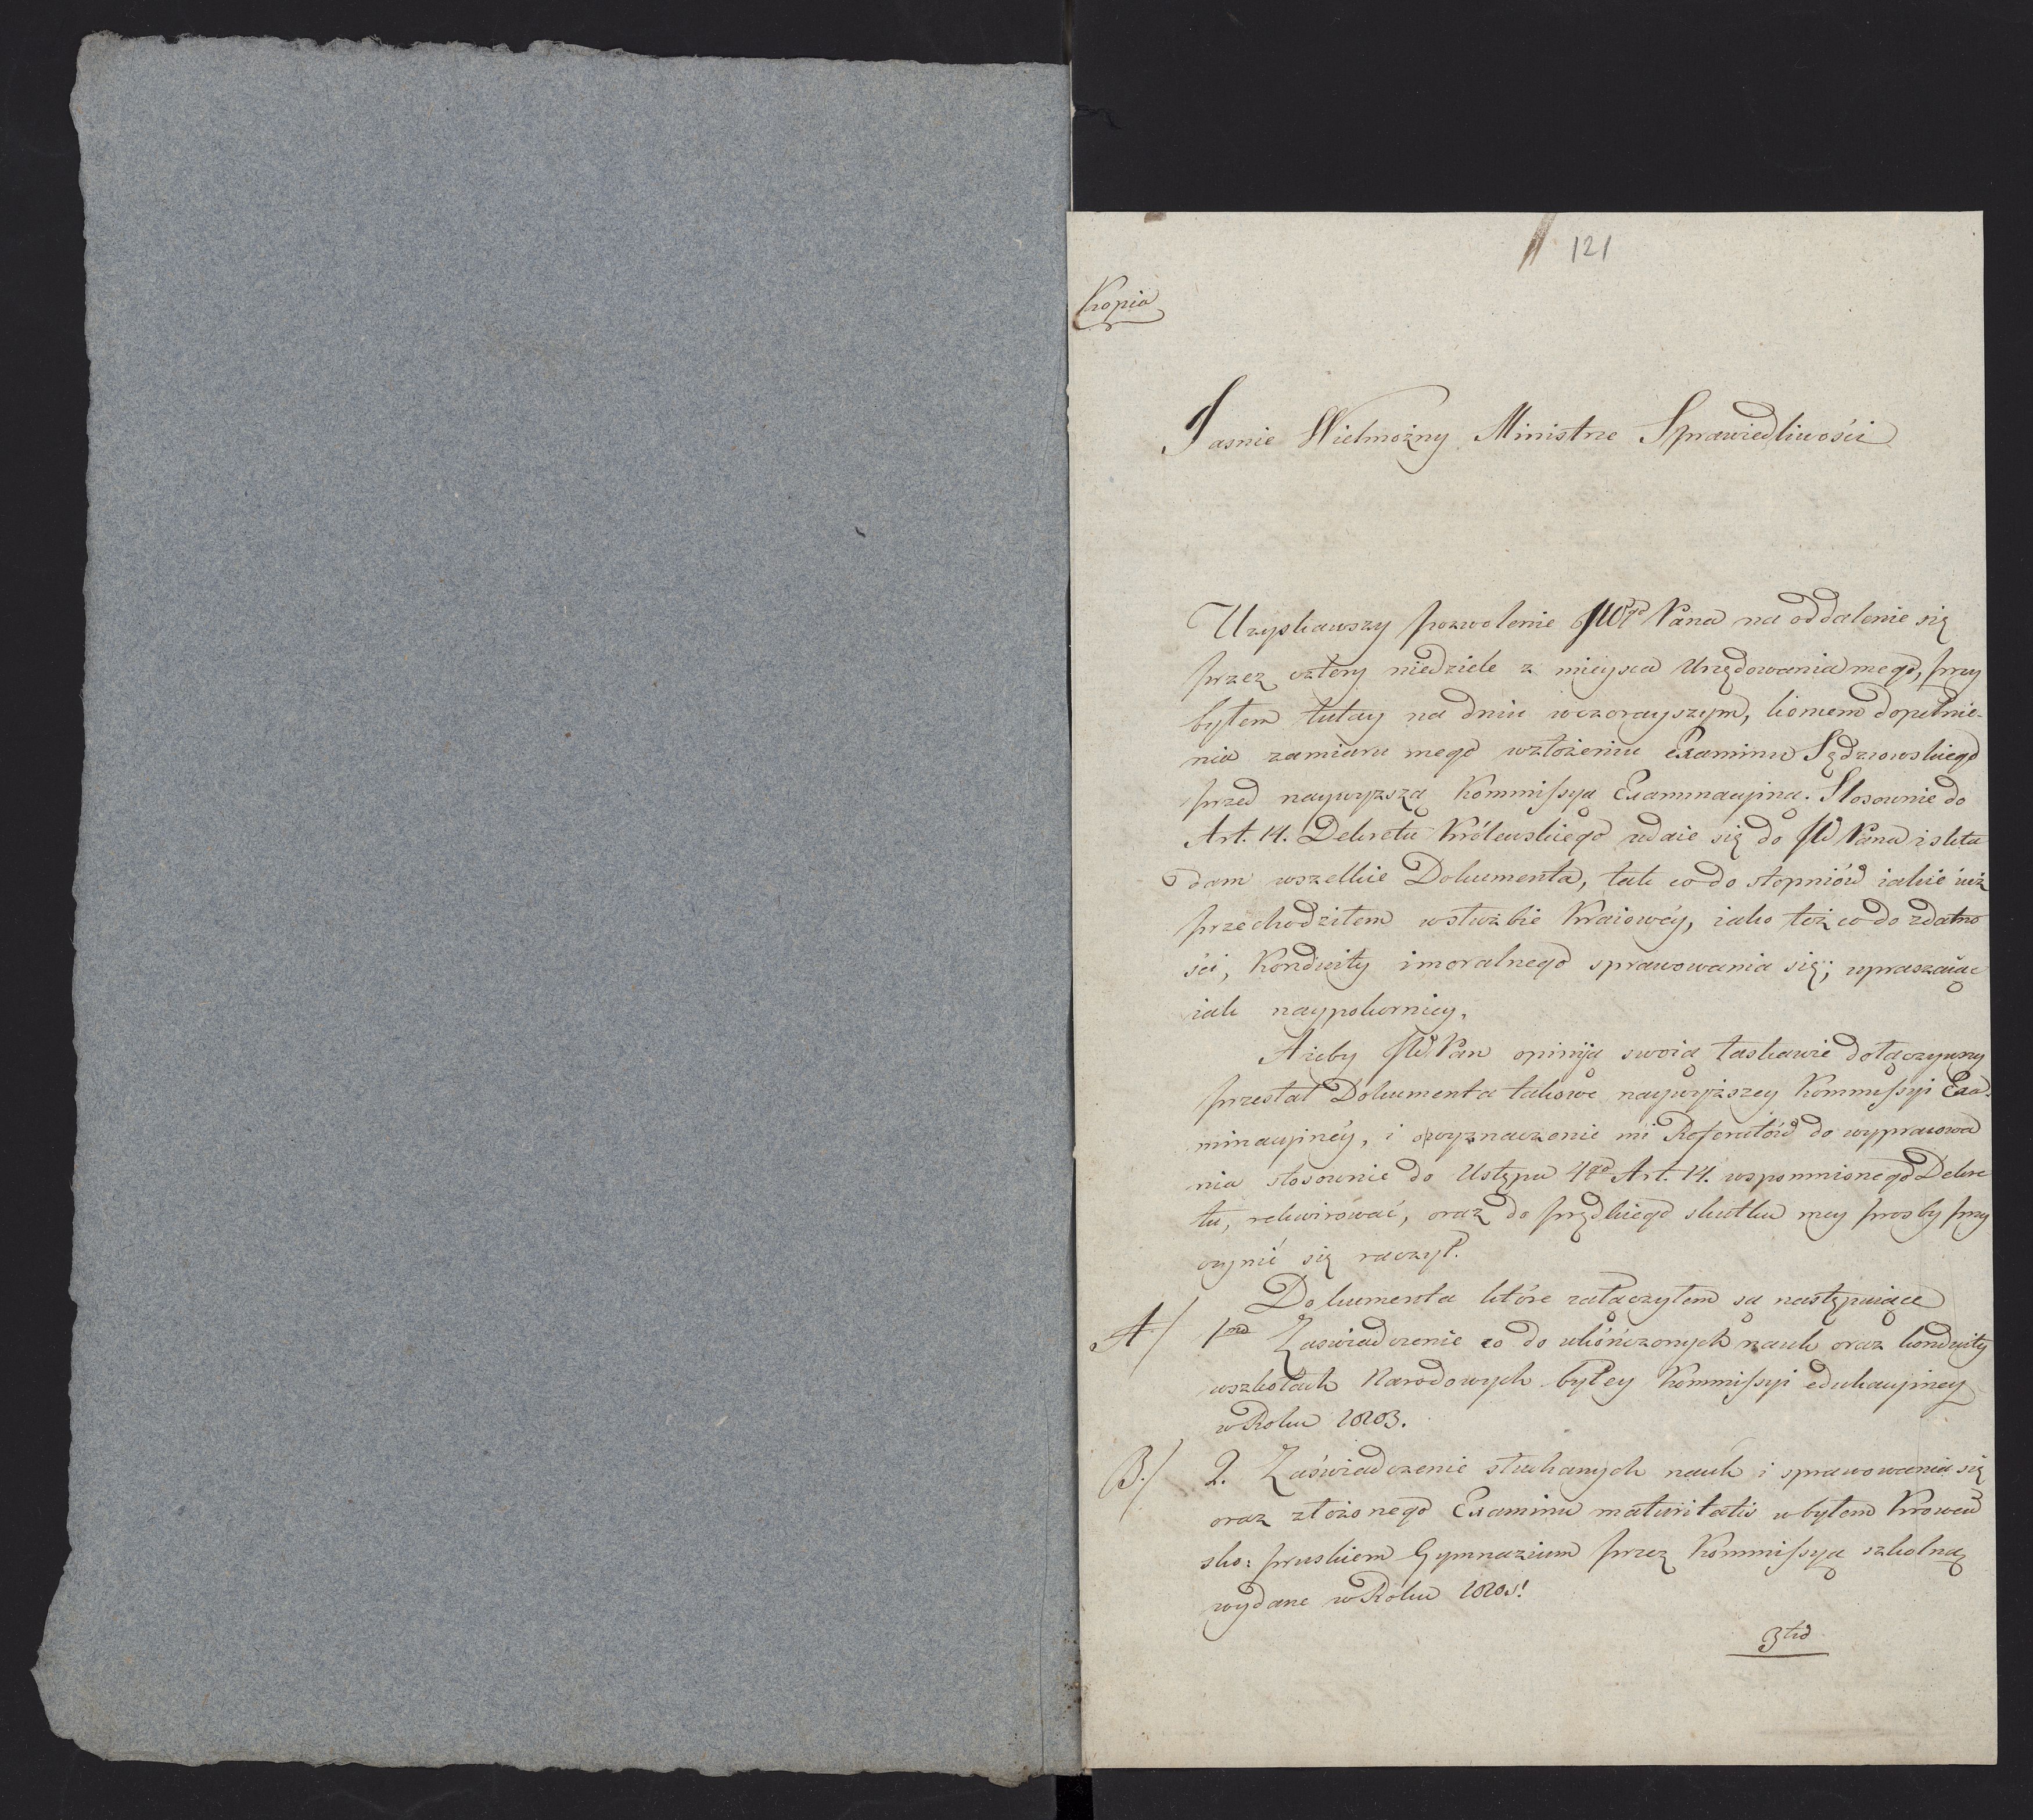 121
Kopia
Jasnie Wielmożny Ministrze Sprawiedliwości
Uzyskawszy pozwolenie JWgo Pana na oddalenie się
przez cztery niedziele z mieysca Urzędowania mego, przy
byłem tutay na dniu wczorayszym, końcem dopełnie-
nia zamiaru mego wzłożeniu Examinu Sędziowskiego
przed naywyższą Kommissyą Examinacyiną. Stosownie do
Art. 14. Dekretu Królewskiego udaie się do JW Pana i skła
dam wszelkie Dokumenta, tak co do stopniów iakie iuż
przechodziłem wsłużbie Kraiowéy, iako też co do zdatno
ści, Konduity imoralnego sprawowania się; upraszaiąc
iak naypokorniey,
Ażeby JW. Pan opiniją swoią łaskawie dołączywszy
przesłał Dokumenta takowe naywyższey Kommissyi Exa-
minacyinéy, i owyznaczenie mi Referatów do wypracowa
nia stosownie do Ustępu 4go Art. 14. wspomnionego Dekre
tu, rekwirować, oraz do prędkiego skutku mey prosby przy
czynić się raczył.
Dokumenta które załączyłem są następuiące
A/ 1mo Zaswiadczenie co do ukończonych nauk oraz konduity
wszkołach Narodowych byłey Kommissyi edukacyiney
w Roku 1803.
B./ 2. Zaświadczenie słuchanych nauk i sprawowania się
oraz złożonego Examinu maturitatis wbyłem Krolew
sko: pruskiem Gymnazium przez Kommissyą szkolną
wydane w Roku 1805!
3tio